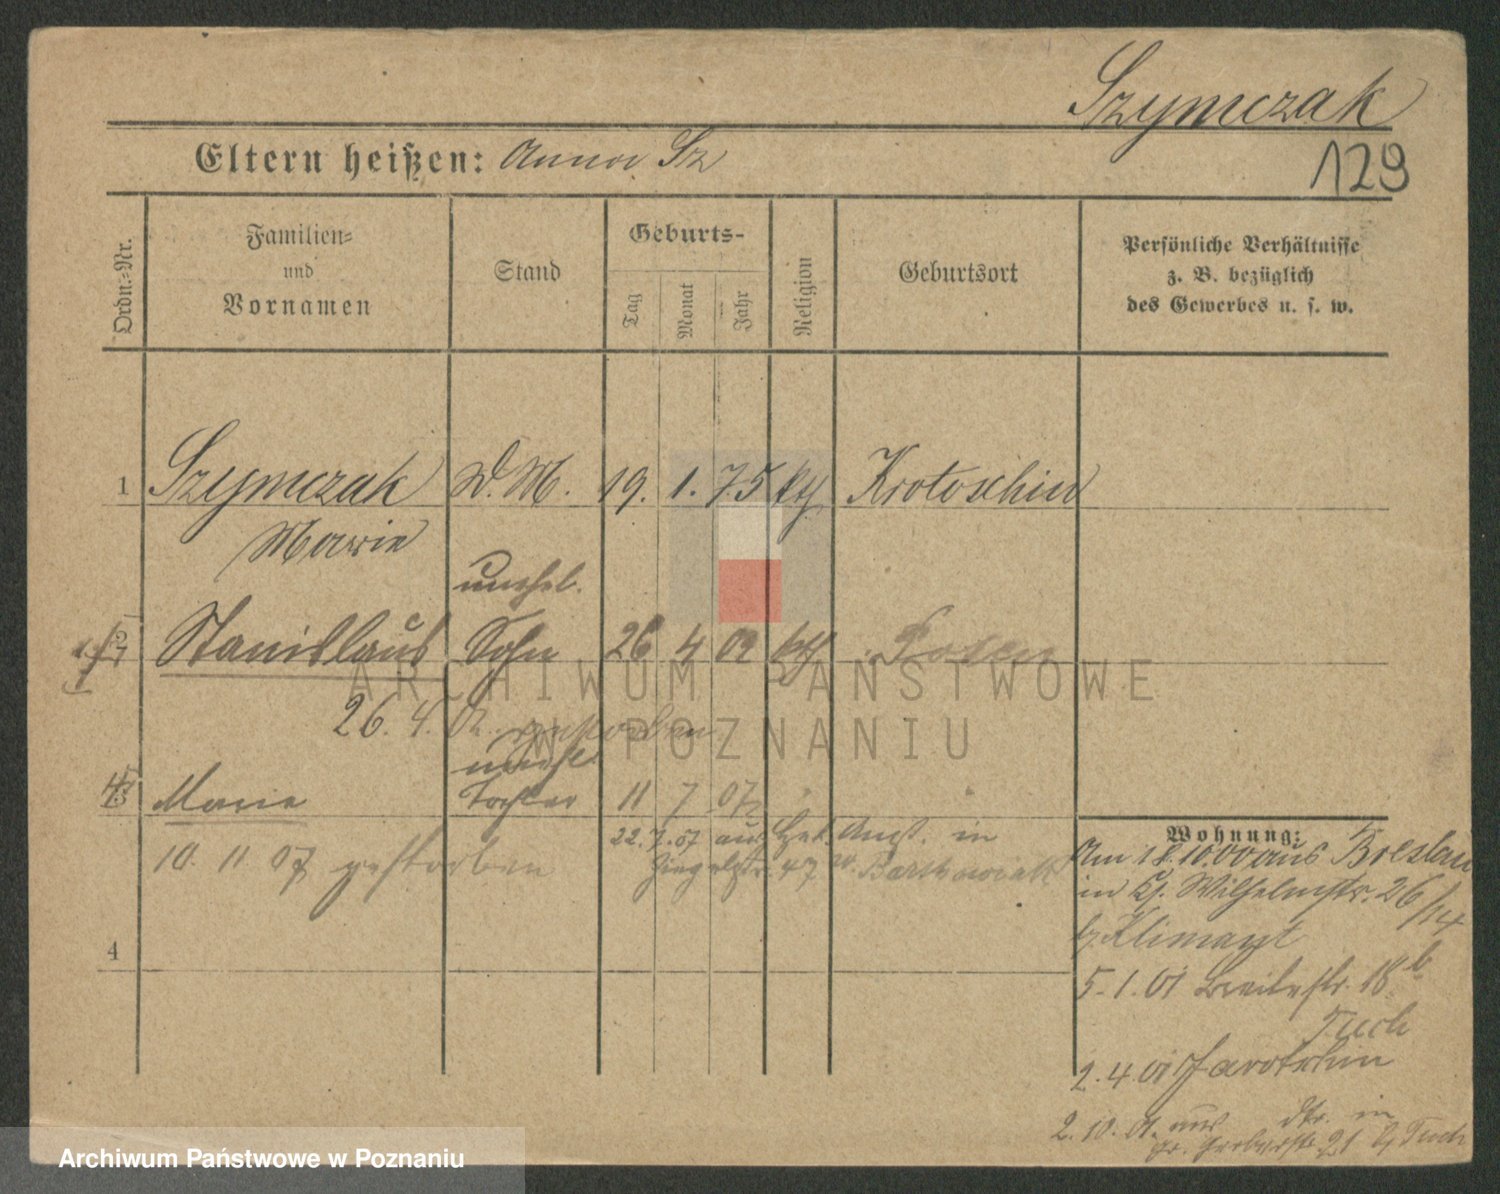 Szymczak
129
Eltern heißen: Anna Sz
Ordn.-Nr.
Familien-
und
Vornamen
Stand
Geburts-
Tag
Monat
Jahr
Religion
Geburtsort
Persönliche Verhältnisse
z. B. bezüglich
des Gewerbes u. s. w.
1 Szymczak D. M. 19. 1. 75 kth Krotoschin
Marie
unehel.
2 Stanislaus Sohn 26 4 02 kth Posen
26. 4. 02 gestorben
unehl.
3 Marie Tochter 11 7 07
22. 7. 07 aus Angst. in
10. 11. 07 gestorben
47
4
Wohnung:
Am 18.10.00 aus Breslau
in Wilhelmstr. 26/14
b. Klimant
5. 1. 01 Breitestr. 18b
Tuch
2. 4. 01 Jarotschin
2. 10. 01. aus in
gr. Gerberstr. 21 b Tuch
ARCHIWUM PAŃSTWOWE
W POZNANIU
Archiwum Państwowe w Poznaniu